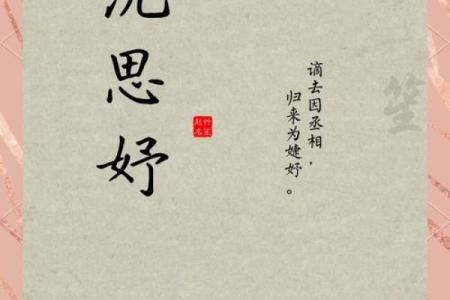 思妤
谪去因丞相，
归来为婕妤。
笙